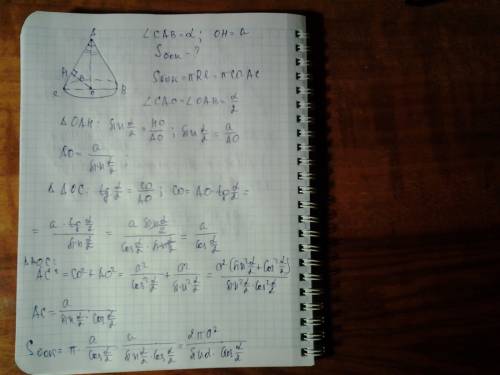 ∠CAB=α; OH=a
Sбок-?
Sбок=πRℓ=πCO·AC
∠CAO=∠OAH=α/2
△OAH: sin α/2 = HO/AO; sin α/2 = a/AO
AO= a/sin α/2;
△AOC: tg α/2 = CO/AO; CO=AO·tg α/2=
= a·tg α/2 / sin α/2 = a sin α/2 / cos α/2·sin α/2 = a/cos α/2
△AOC:
AC²=CO²+AO²= a²/cos² α/2 + a²/sin² α/2 = a²(sin² α/2+cos² α/2)/sin² α/2·cos² α/2
AC= a/sin α/2·cos α/2
Sбок=π· a/cos α/2 · a/sin α/2·cos α/2 = 2πa²/sin α·cos α/2